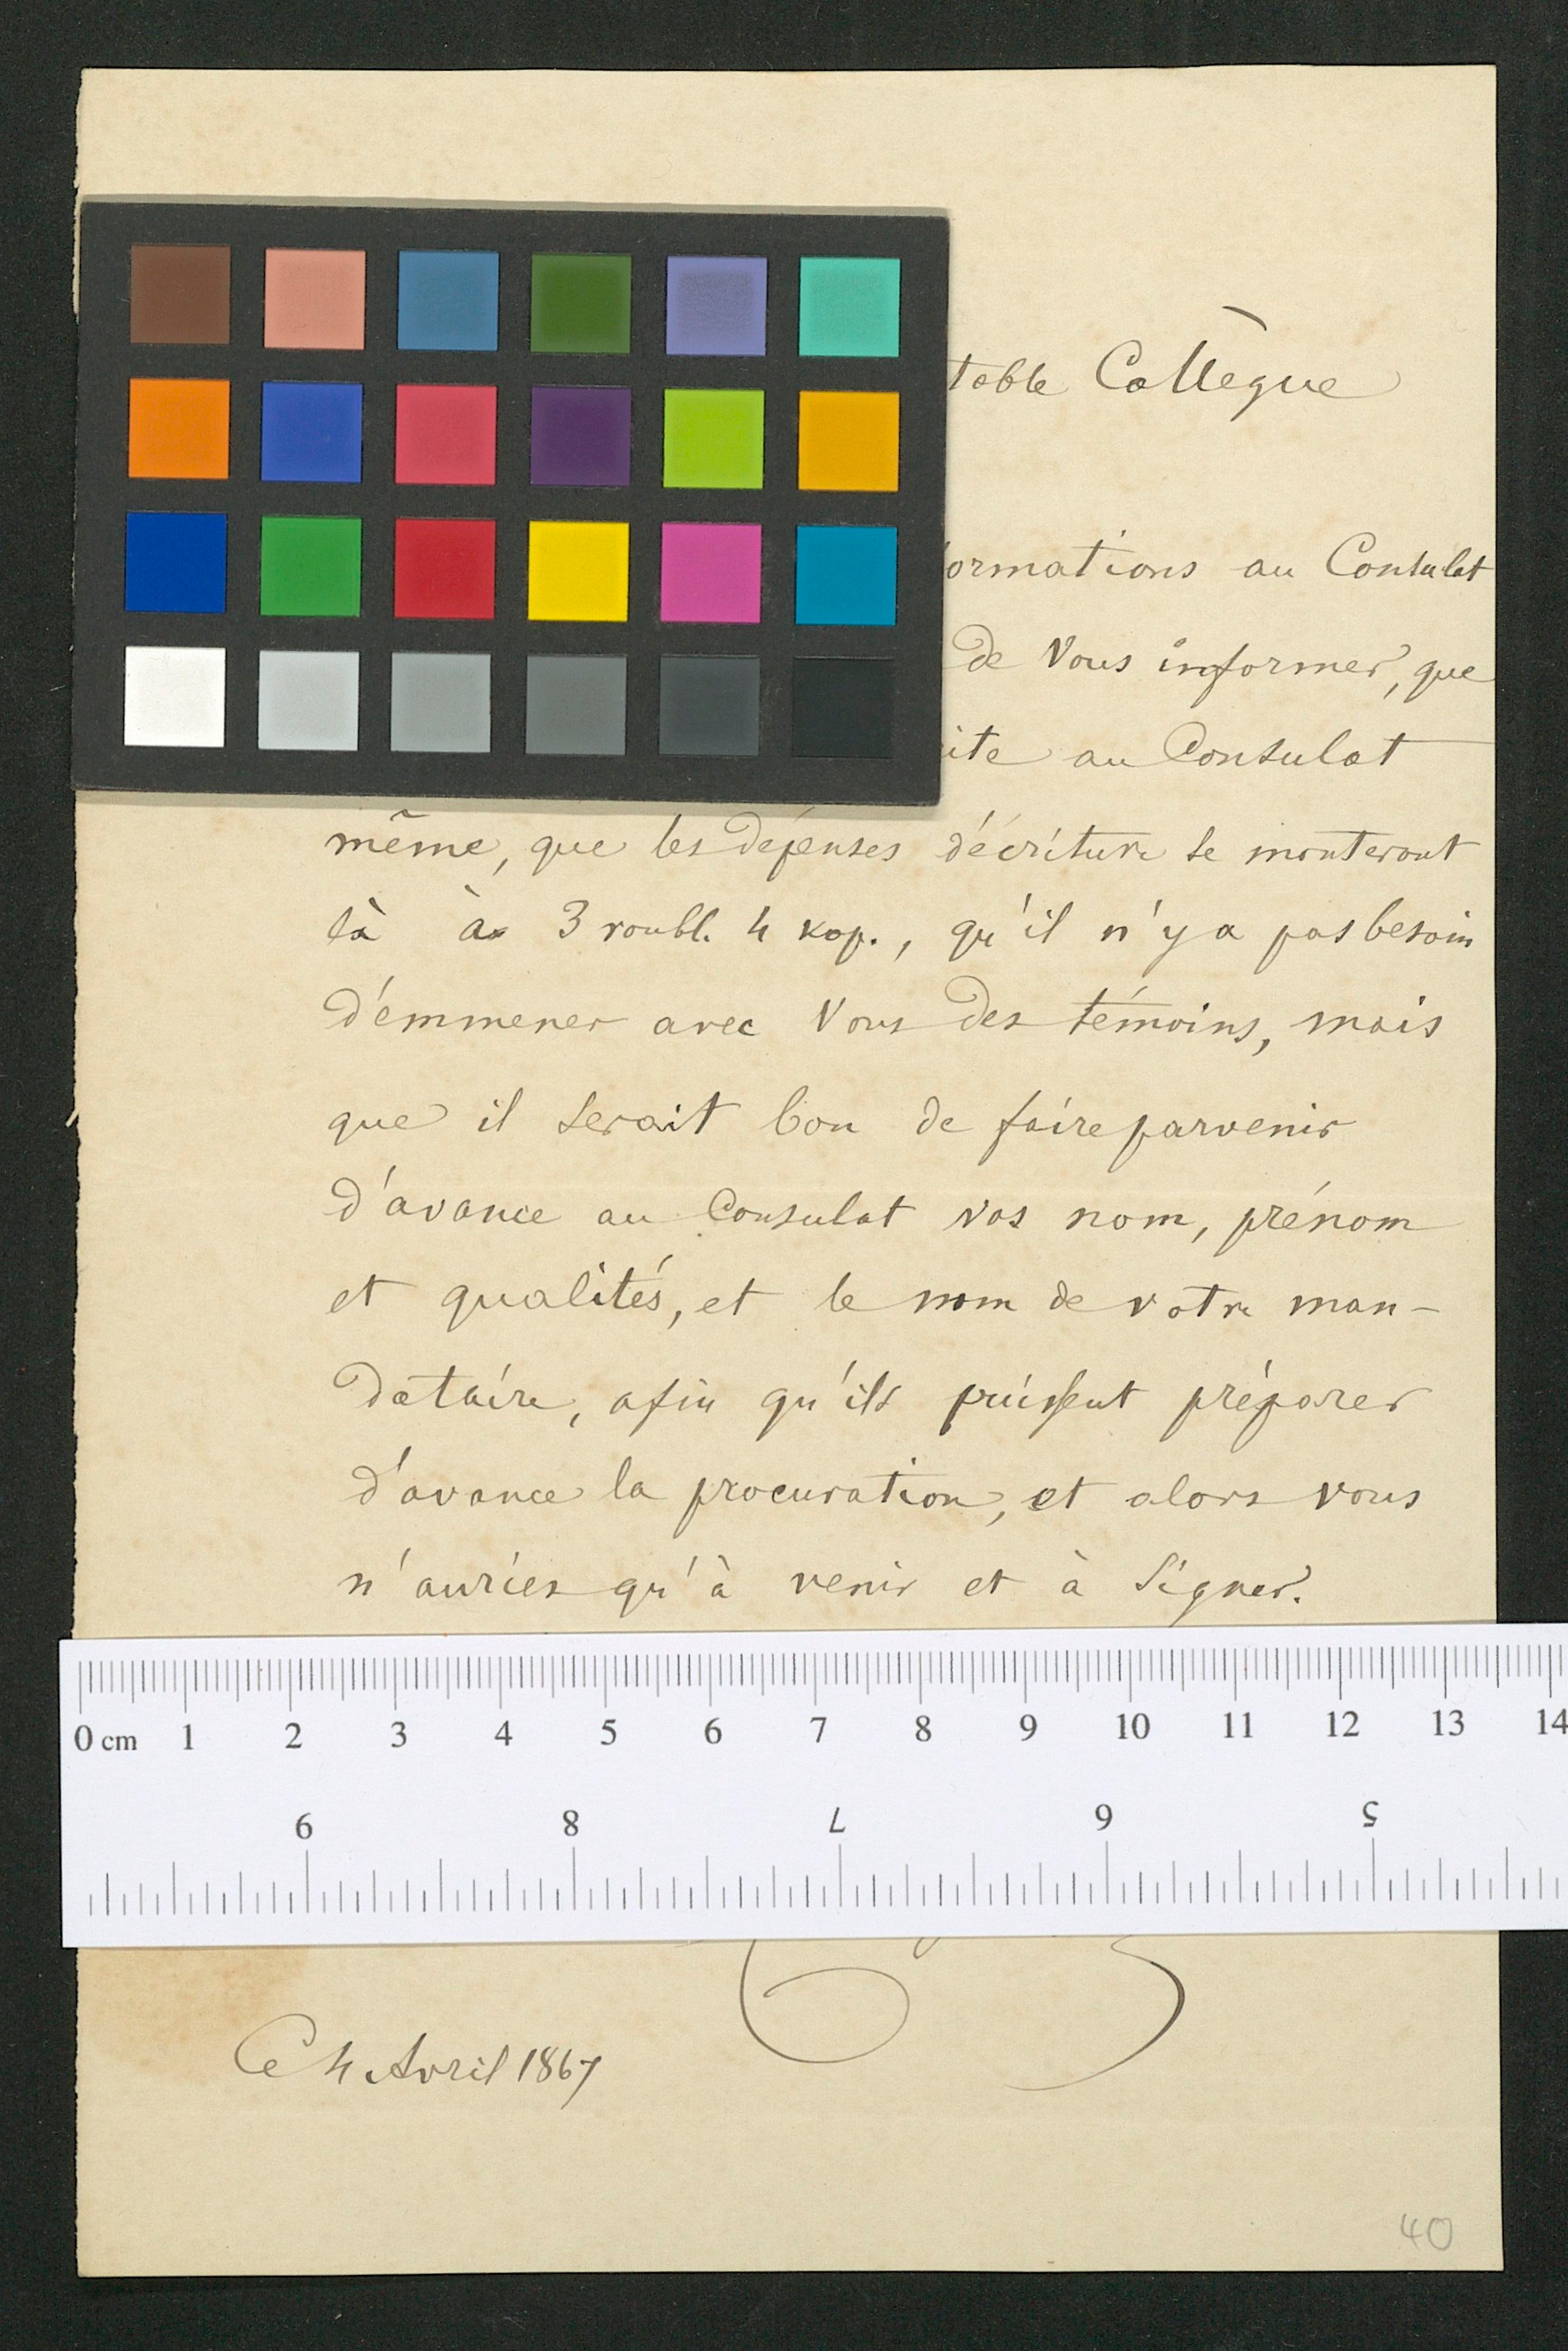 table Collègue
ormations au Consulat
de Vous informer, que
ite au Consulat
même, que les dépenses d'écriture se monteront
là à 3 roubl. 4 kop., qu'il n'y a pas besoin
d'emmener avec Vous des témoins, mais
que il serait bon de faire parvenir
d'avance au Consulat vos nom, prénom
et qualités, et le nom de votre man-
dataire, afin qu'ils puissent préparer
d'avance la procuration, et alors vous
n'auriez qu'à venir et à signer.
0 cm 1 2 3 4 5 6 7 8 9 10 11 12 13 14
9 8 7 6 5
Ce 4 Avril 1867
40